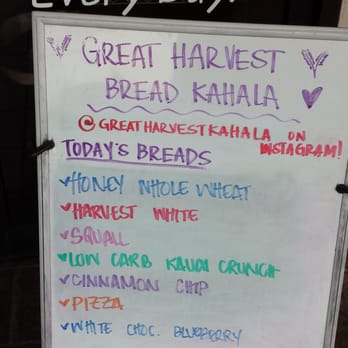 Every Day!
GREAT HARVEST
BREAD KAHALA
@GREATHARVESTKAHALA ON
INSTAGRAM!
TODAY'S BREADS
HONEY WHOLE WHEAT
HARVEST WHITE
SQUALL
LOW CARB KAUAI CRUNCH
CINNAMON CHIP
PIZZA
WHITE CHOC. BLUEBERRY